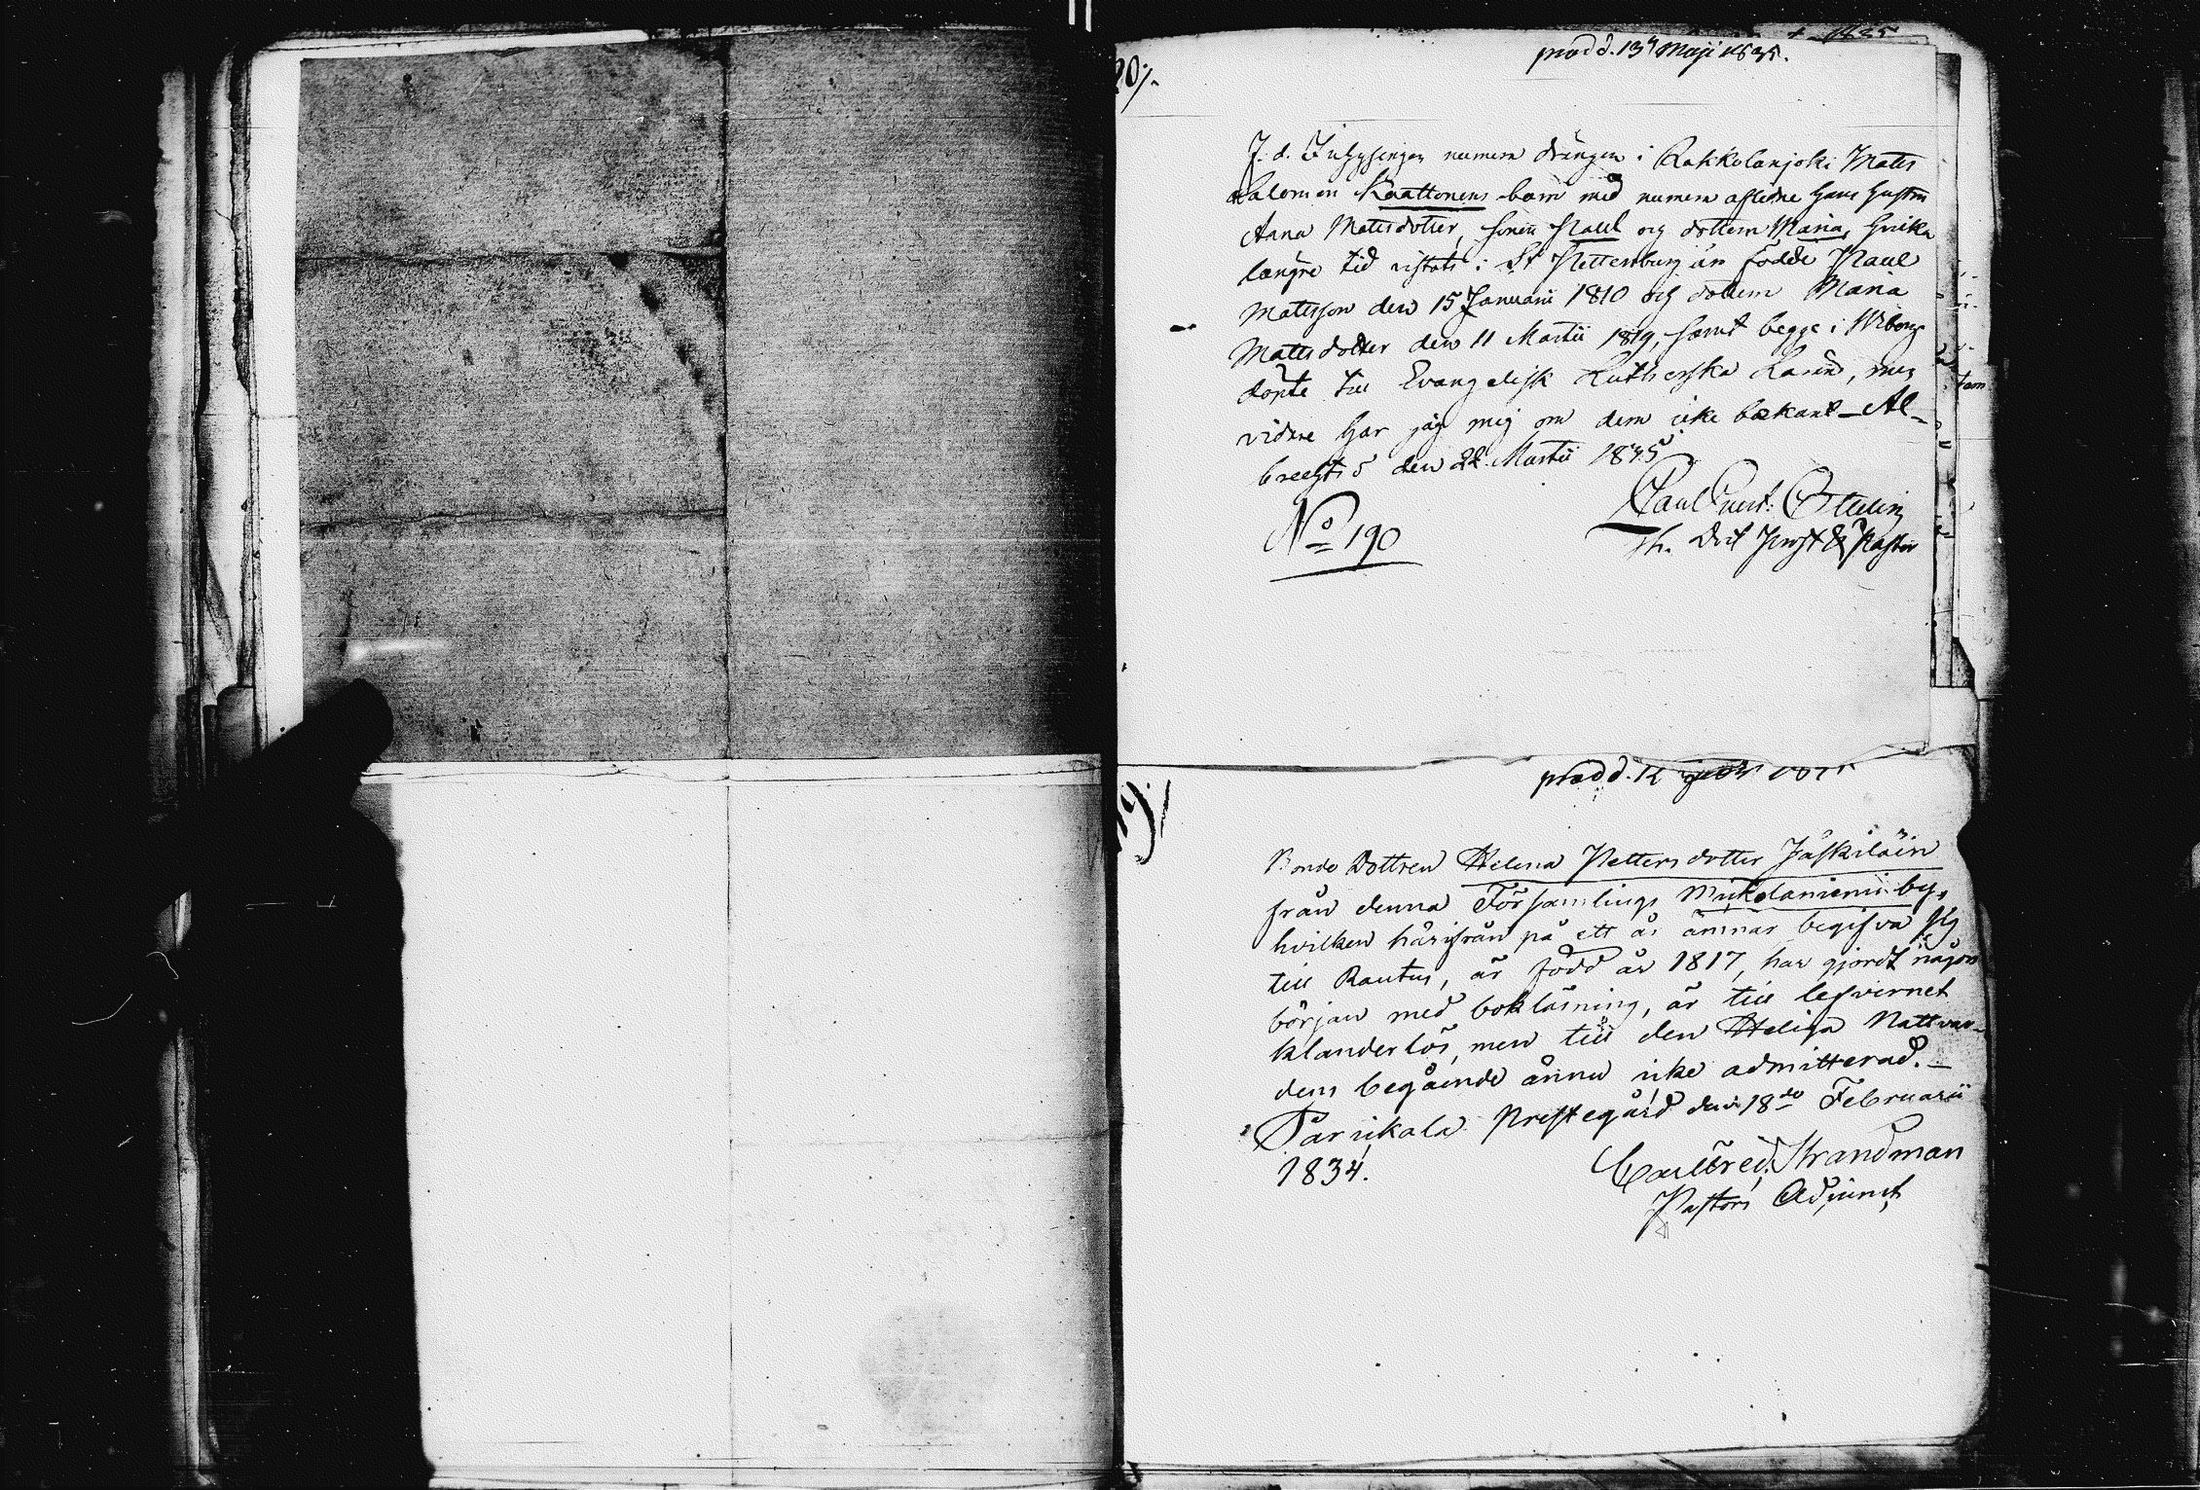 20/.
prod d. 13 Maji 1835.
F. d. numera drängen i Rakkolanjoki Mats
Salomon Kaattonens barn med numera aflidne Hans Hustru
Anna Matsdotter, sonen Paul og dottern Maria, hvilka
längre tid vistats i St Pettersburg äro födde Paul
Matsson den 15 Januarii 1810 och dottern Maria
Mattsdotter den 11 Martii 1819, samt begge i Wiborg
döpte till Evangelisk Lutherska Läran, mer
vidare har jag mig om dem icke bekant Al-
den 22 Martii 1835
Paul
No 190
Th. Doct Prost & Pastor
19/
prod d. 12
Bonde Dottren Helena Petters dotter Jäskiläin
från denna Församlings Mikolaniemi by,
hvilken härifrån på ett år ämnar begifva sig
till Rautus, är född år 1817, har gjordt någon
början med bokläsning, är till lefvernet
klanderlös, men till den Heliga Nattvar-
dens begående ännu icke admitterad.
Parikala Prestegård den 18de Februarii
1834.
Carl Fred. Strandman
Pastors Adjunct